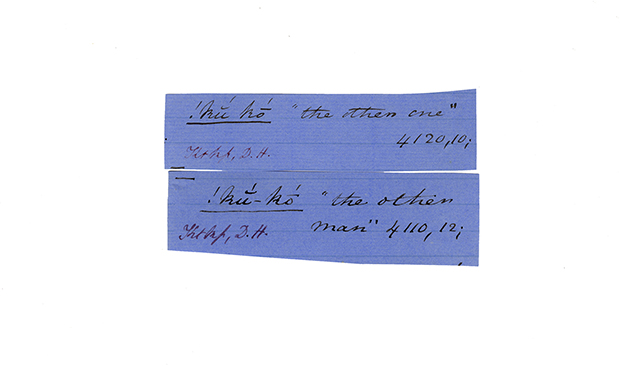 !kṹ kó "the other one"
4120,10;
D.H.
!kṹ-kó "the other
man" 4110,12;
D.H.